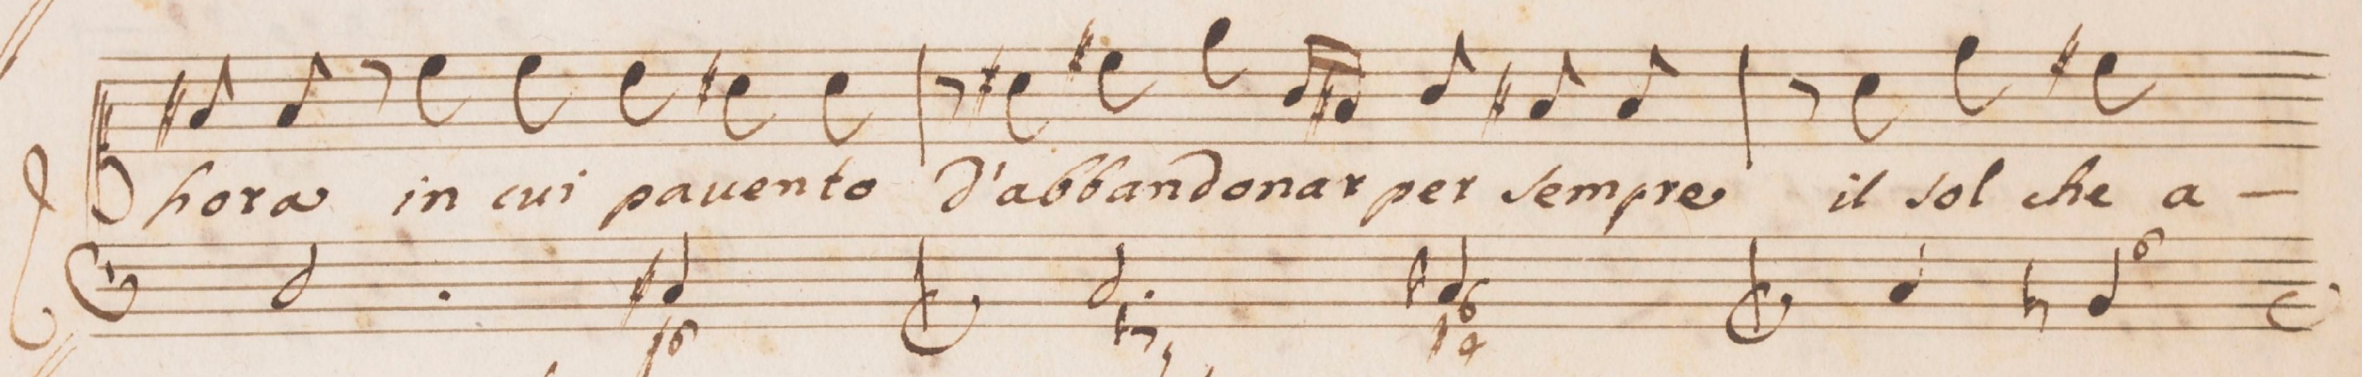 hora in cui pauento d'abbandonar per sempre il sol che a –